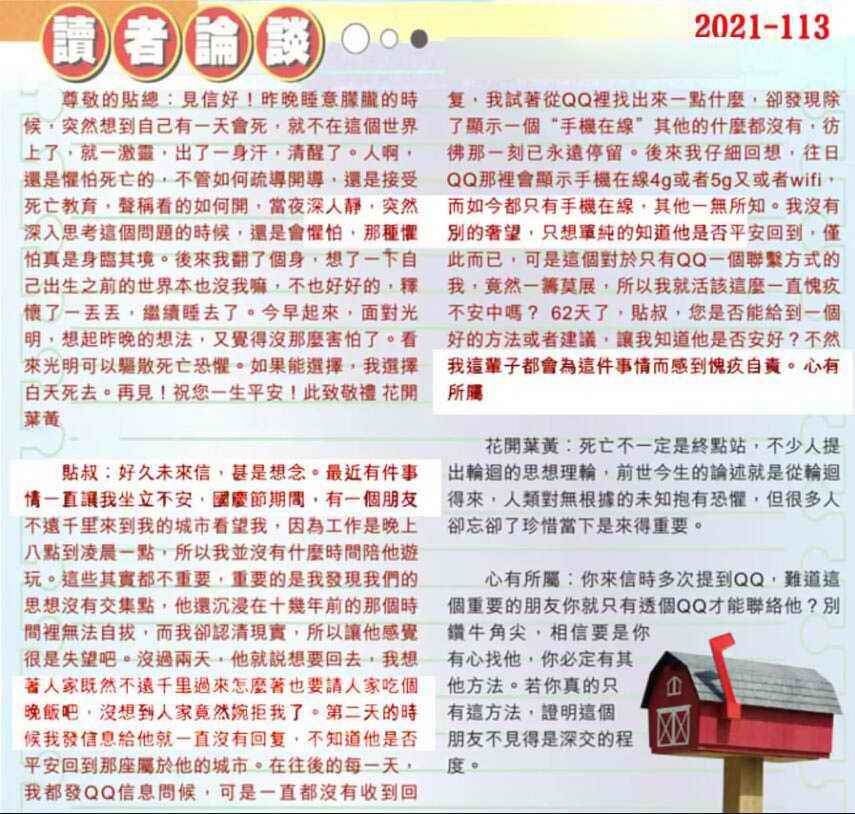 讀者論談
2021-113
尊敬的貼總：見信好！昨晚睡意朦朧的時
候，突然想到自己有一天會死，就不在這個世界
上了，就一激靈，出了一身汗，清醒了。人啊，
還是懼怕死亡的，不管如何疏導開導，還是接受
死亡教育，聲稱看的如何開，當夜深人靜，突然
深入思考這個問題的時候，還是會懼怕，那種懼
怕真是身臨其境。後來我翻了個身，想了一下自
己出生之前的世界本也沒我嘛，不也好好的，釋
懷了一丟丟，繼續睡去了。今早起來，面對光
明，想起昨晚的想法，又覺得沒那麼害怕了。看
來光明可以驅散死亡恐懼。如果能選擇，我選擇
白天死去。再見！祝您一生平安！此致敬禮 花開
葉黃
貼叔：好久未來信，甚是想念。最近有件事
情一直讓我坐立不安，國慶節期間，有一個朋友
不遠千里來到我的城市看望我，因為工作是晚上
八點到凌晨一點，所以我並沒有什麼時間陪他遊
玩。這些其實都不重要，重要的是我發現我們的
思想沒有交集點，他還沉浸在十幾年前的那個時
間裡無法自拔，而我卻認清現實，所以讓他感覺
很是失望吧。沒過兩天，他就説想要回去，我想
著人家既然不遠千里過來怎麼著也要請人家吃個
晚飯吧，沒想到人家竟然婉拒我了。第二天的時
候我發信息給他就一直沒有回复，不知道他是否
平安回到那座屬於他的城市。在往後的每一天，
我都發QQ信息問候，可是一直都沒有收到回
复，我試著從QQ裡找出來一點什麼，卻發現除
了顯示一個“手機在線”其他的什麼都沒有，彷
彿那一刻已永遠停留。後來我仔細回想，往日
QQ那裡會顯示手機在線4g或者5g又或者wifi，
而如今都只有手機在線，其他一無所知。我沒有
別的奢望，只想單純的知道他是否平安回到，僅
此而已，可是這個對於只有QQ一個聯繫方式的
我，竟然一籌莫展，所以我就活該這麼一直愧疚
不安中嗎？ 62天了，貼叔，您是否能給到一個
好的方法或者建議，讓我知道他是否安好？不然
我這輩子都會為這件事情而感到愧疚自責。 心有
所屬
花開葉黃：死亡不一定是終點站，不少人提
出輪迴的思想理輪，前世今生的論述就是從輪迴
得來，人類對無根據的未知抱有恐懼，但很多人
卻忘卻了珍惜當下是來得重要。
心有所屬：你來信時多次提到QQ，難道這
個重要的朋友你就只有透個QQ才能聯絡他？別
鑽牛角尖，相信要是你
有心找他，你必定有其
他方法。若你真的只
有這方法，證明這個
朋友不見得是深交的程
度。